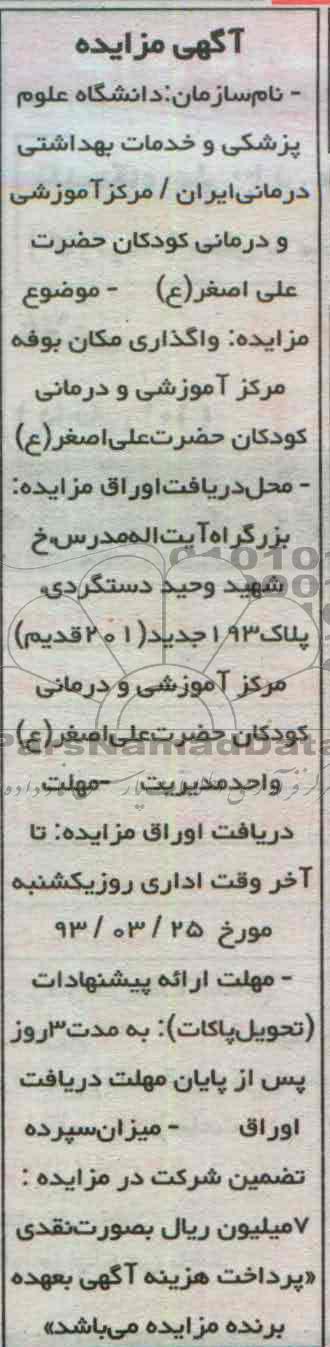 آگهی مزایده
- نام‌سازمان:دانشگاه علوم
پزشکی و خدمات بهداشتی
درمانی‌ایران / مرکزآموزشی
و درمانی کودکان حضرت
علی اصغر(ع) - موضوع
مزایده: واگذاری مکان بوفه
مرکز آموزشی و درمانی
کودکان حضرت‌علی‌اصغر(ع)
- محل‌دریافت‌اوراق مزایده:
بزرگراه‌آیت‌اله‌مدرس،خ
شهید وحید دستگردی،
پلاک۱۹۳جدید(۲۰۱قدیم)
مرکز آموزشی و درمانی
کودکان حضرت‌علی‌اصغر(ع)
واحدمدیریت -مهلت
دریافت اوراق مزایده: تا
آخر وقت اداری روزیکشنبه
مورخ ۲۵ / ۰۳ / ۹۳
- مهلت ارائه پیشنهادات
(تحویل‌پاکات): به مدت۳روز
پس از پایان مهلت دریافت
اوراق - میزان‌سپرده
تضمین شرکت در مزایده :
۷میلیون ریال بصورت‌نقدی
«پرداخت هزینه آگهی بعهده
برنده مزایده می‌باشد»
ParsNamadData